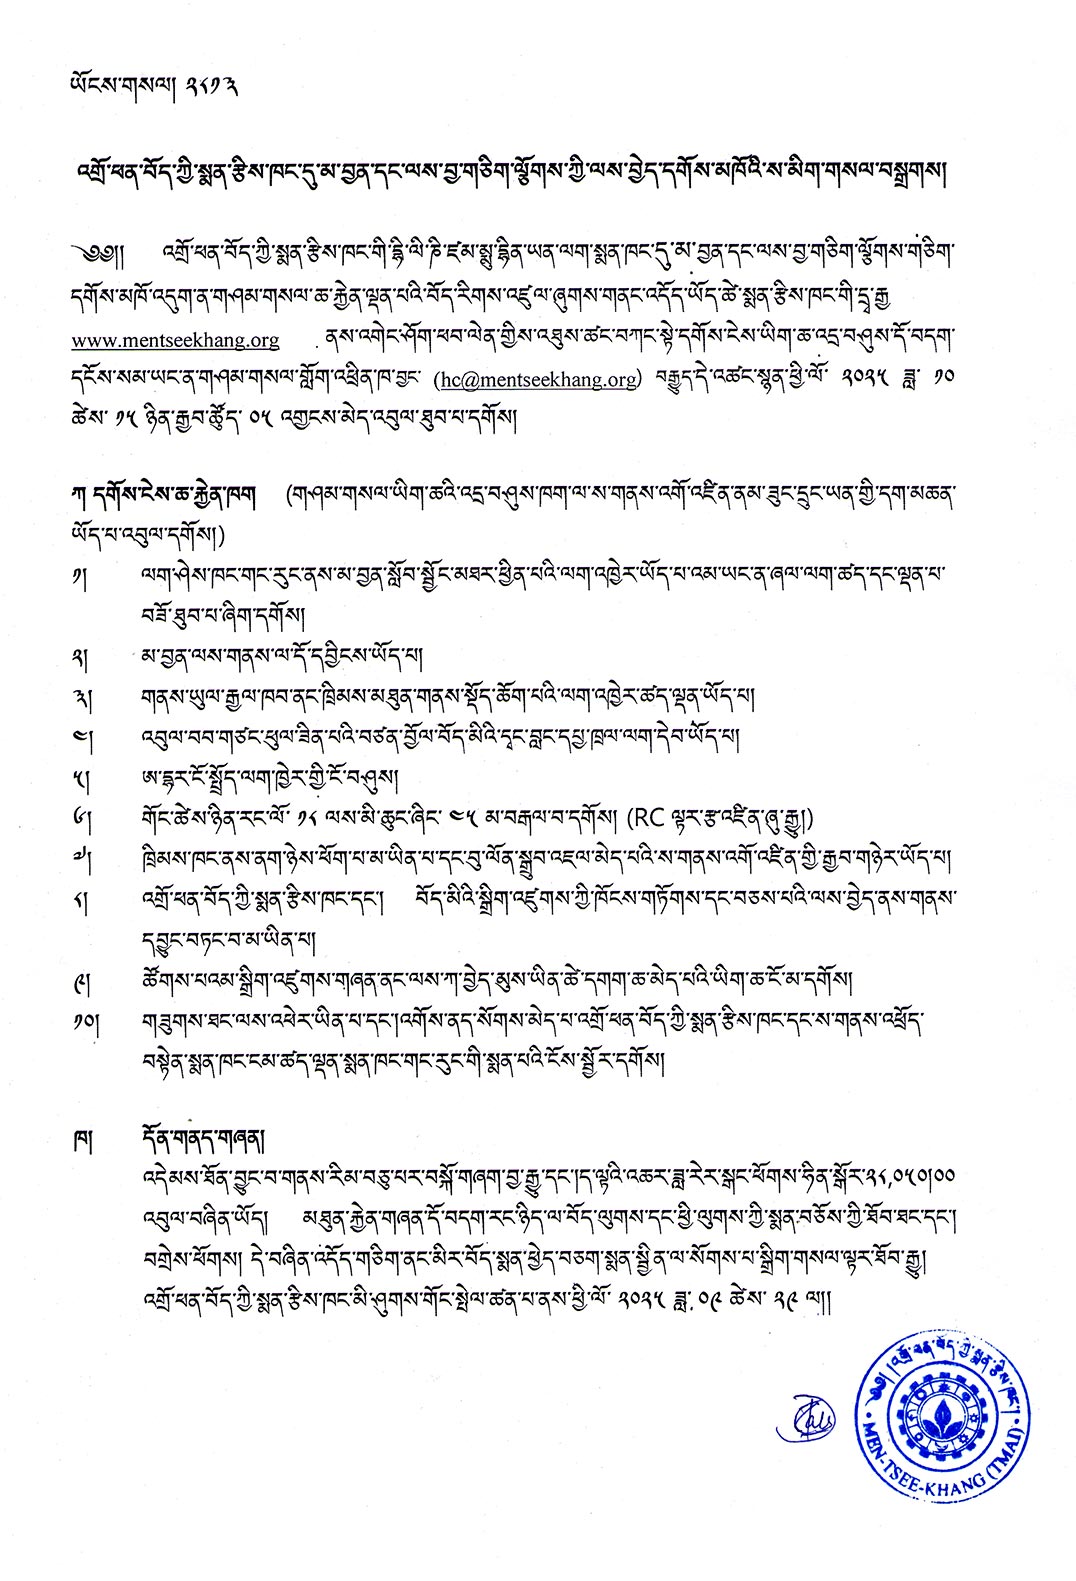 ཡོངས་གསལ། ༢༨༡༣
འགྲོ་ཕན་བོད་ཀྱི་སྨན་རྩིས་ཁང་དུ་མ་བྱན་དང་ལས་བྱ་གཅིག་ལྕོགས་ཀྱི་ལས་བྱེད་དགོས་མཁོའི་ས་མིག་གསལ་བསྒྲགས།
༄༅།། འགྲོ་ཕན་བོད་ཀྱི་སྨན་རྩིས་ཁང་གི་ལྡི་ལི་ཊི་ཛམ་སྨུ་ཊྷིན་ཡན་ལག་སྨན་ཁང་དུ་མ་བྱན་དང་ལས་བྱ་གཅིག་ལྕོགས་གཅིག་
དགོས་མཁོ་འདུག་ན་གཤམ་གསལ་ཆ་རྐྱེན་ལྡན་པའི་བོད་རིགས་འཛུལ་ཞུགས་གནང་འདོད་ཡོད་ཚེ་སྨན་རྩིས་ཁང་གི་དྲྭ་རྒྱ
www.mentseekhang.org ནས་འགེང་ཤོག་ཕབ་ལེན་གྱིས་འཐུས་ཚང་བཀང་སྟེ་དགོས་ངེས་ཡིག་ཆ་འདྲ་བཤུས་དོ་བདག་
དངོས་སམ་ཡང་ན་གཤམ་གསལ་གློག་འཕྲིན་ཁ་བྱང་ (hc@mentseekhang.org) བརྒྱུད་དེ་འཚང་སྙན་ཕྱི་ལོ་ ༢༠༢༥ ཟླ་ ༡༠
ཚེས་ ༡༥ ཉིན་རྒྱབ་ཚོུད་ ༠༥ འགྱངས་མེད་འབུལ་ཐུབ་པ་དགོས།
ཀ། དགོས་ངེས་ཆ་རྐྱེན་ཁག (གཤམ་གསལ་ཡིག་ཆའི་འདྲ་བཤུས་ཁག་ལ་ས་གནས་འགོ་འཛིན་ནམ་ཟུང་དྲུང་ཡན་གྱི་དག་མཆན་
ཡོད་པ་འབུལ་དགོས།)
༡། ལག་ཤེས་ཁང་གང་རུང་ནས་མ་བྱན་སློབ་སྦྱོང་མཐར་ཕྱིན་པའི་ལག་འཁྱེར་ཡོད་པ་འམ་ཡང་ན་ཞལ་ལག་ཚད་དང་ལྡན་པ་
བཟོ་ཐུབ་པ་ཞིག་དགོས།
༢། མ་བྱན་ལས་གནས་ལ་དོ་དབྱིངས་ཡོད་པ།
༣། གནས་ཡུལ་རྒྱལ་ཁབ་ནང་ཁྲིམས་མཐུན་གནས་སྡོད་ཆོག་པའི་ལག་འཁྱེར་ཚད་ལྡན་ཡོད་པ།
༤། འབུལ་བབ་གཙང་ཕུལ་ཟིན་པའི་བཙན་བྱོལ་བོད་མིའི་དྭང་བླང་དཔྱ་ཁྲལ་ལག་དེབ་ཡོད་པ།
༥། ཨ་དྷར་ངོ་སྤྲོད་ལག་ཁྱེར་གྱི་ངོ་བཤུས།
༦། གོང་ཚེས་ཉིན་རང་ལོ་ ༡༨ ལས་མི་ཆུང་ཞིང་ ༤༥ མ་བརྒལ་བ་དགོས། (RC ལྟར་རྩ་འཛིན་ཞུ་རྒྱུ།)
༧། ཁྲིམས་ཁང་ནས་ནག་ཉེས་ཕོག་པ་མ་ཡིན་པ་དང་བུ་ལོན་སྒྲུབ་འཇལ་མེད་པའི་ས་གནས་འགོ་འཛིན་གྱི་རྒྱབ་གཉེར་ཡོད་པ།
༨། འགྲོ་ཕན་བོད་ཀྱི་སྨན་རྩིས་ཁང་དང་། བོད་མིའི་སྒྲིག་འཛུགས་ཀྱི་ཁོངས་གཏོགས་དང་བཅས་པའི་ལས་བྱེད་ནས་གནས་
དབྱུང་བཏང་བ་མ་ཡིན་པ།
༩། ཚོགས་པའམ་སྒྲིག་འཛུགས་གཞན་ནང་ལས་ཀ་བྱེད་མུས་ཡིན་ཚེ་དགག་ཆ་མེད་པའི་ཡིག་ཆ་ངོ་མ་དགོས།
༡༠། གཟུགས་ཐང་ལས་འཕེར་ཡིན་པ་དང་།འགོས་ནད་སོགས་མེད་པ་འགྲོ་ཕན་བོད་ཀྱི་སྨན་རྩིས་ཁང་དང་ས་གནས་འཕྲོད་
བསྟེན་སྨན་ཁང་ངམ་ཚད་ལྡན་སྨན་ཁང་གང་རུང་གི་སྨན་པའི་ངོས་སྦྱོར་དགོས།
ཁ། དོན་གནད་གཞན།
འདེམས་ཐོན་བྱུང་བ་གནས་རིམ་བཅུ་པར་བསྐོ་གཞག་བྱ་རྒྱུ་དང་།ད་ལྟའི་འཆར་ཟླ་རེར་སྒང་ཕོགས་ཧིན་སྒོར་༢༨,༠༥༠།༠༠
འབུལ་བཞིན་ཡོད། མཐུན་རྐྱེན་གཞན་དོ་བདག་རང་ཉིད་ལ་བོད་ལུགས་དང་ཕྱི་ལུགས་ཀྱི་སྨན་བཅོས་ཀྱི་ཐོབ་ཐང་དང་།
བགྲེས་ཕོགས། དེ་བཞིན་འདོད་གཅིག་ནང་མིར་བོད་སྨན་ཕྱེད་བཅག་སྨན་སྦྱིན་ལ་སོགས་པ་སྒྲིག་གསལ་ལྟར་ཐོབ་རྒྱུ།
འགྲོ་ཕན་བོད་ཀྱི་སྨན་རྩིས་ཁང་མི་ཤུགས་གོང་སྤེལ་ཚན་པ་ནས་ཕྱི་ལོ་ ༢༠༢༥ ཟླ་ ༠༩ ཚེས་ ༢༩ ལ།།
༄༅། །འགྲོ་ཕན་བོད་ཀྱི་སྨན་རྩིས་ཁང་།
MEN-TSEE-KHANG (TMAI)